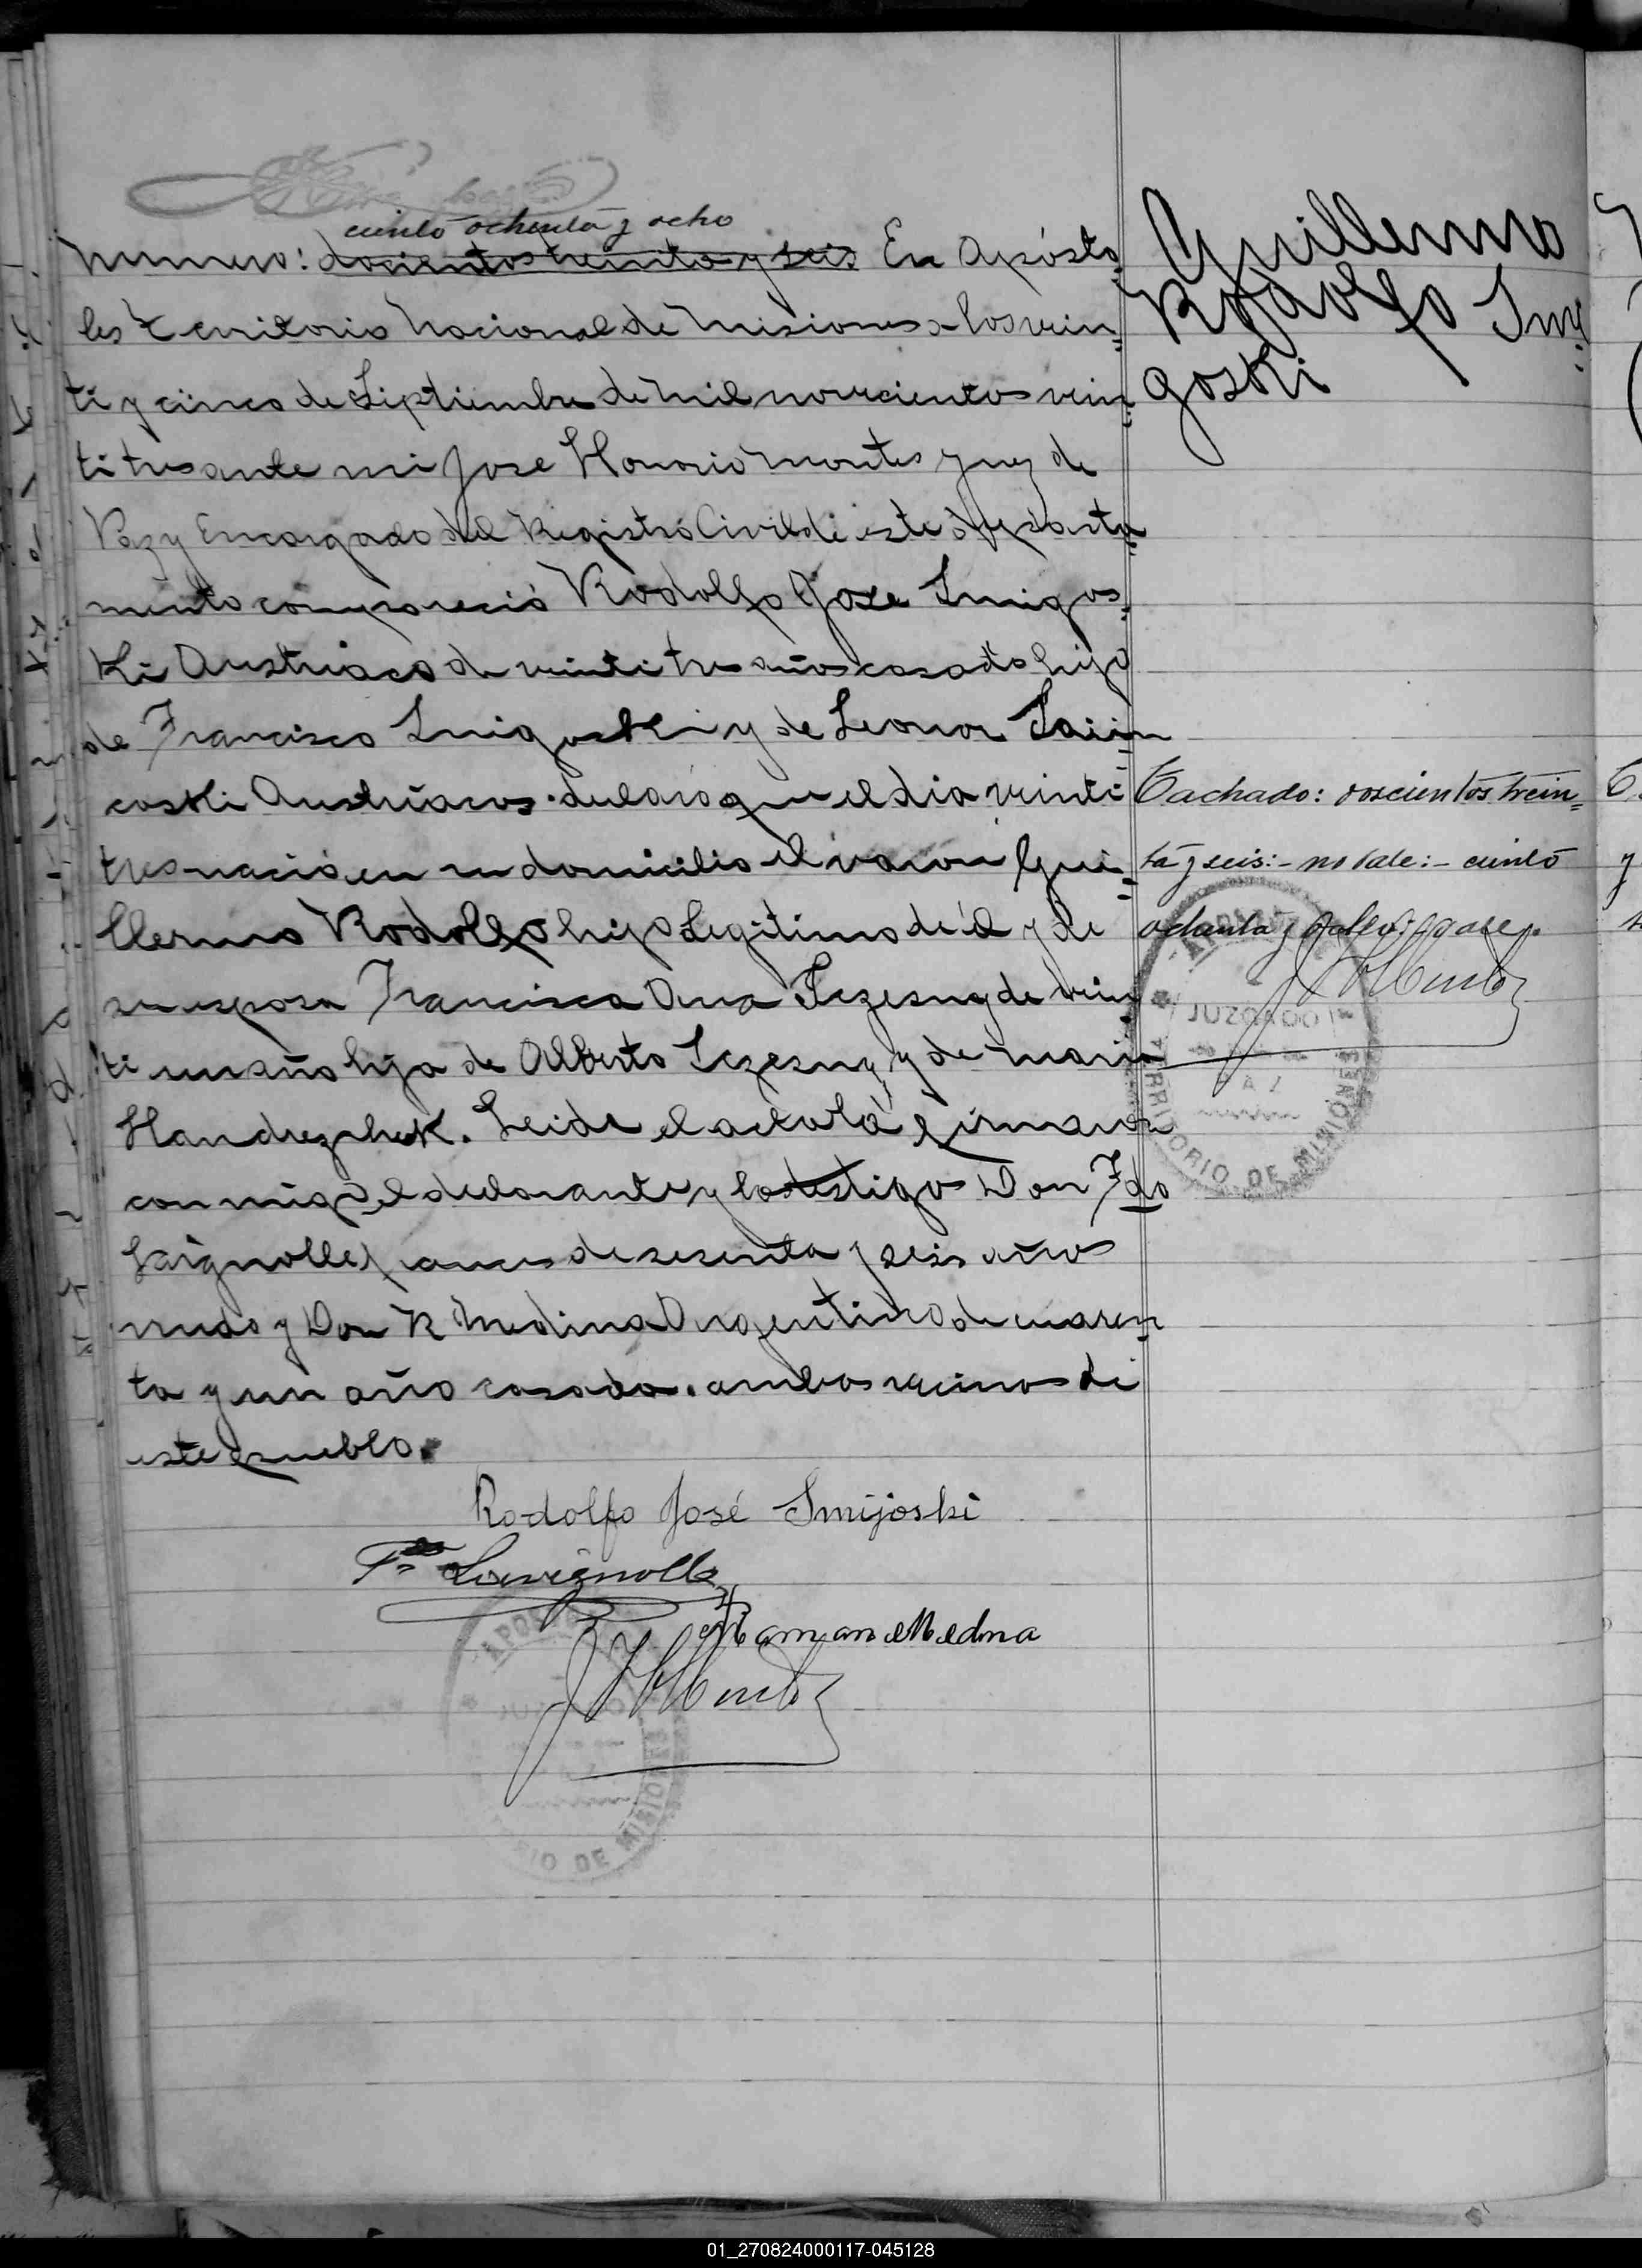 ciento ochenta y ocho
Numero: docientos treinta y seis. En Aposto=
les Territorio Nacional de Misiones a los vein=
ti y cinco de Siptiembre de mil novecientos vein=
ti tres ante mi Jose Honorio Montes Juez de
Paz y Encargado del Registro Civil de este Departa=
mento compareció Rodolfo Jose Smigos=
ki Austriaco de veinti tres años casado hijo
de Francisco Smigoski y de Leonor
coski Austriacos. declaró que el dia veinti
tres nació en su domicilio el varon Gui=
llermo Rodolfo hijo Legitimo de él y de
su esposa Francisca Ana Sczesny de vein=
ti un año hija de Alberto Sczesny y de Maria
Handrezchek. Leida el acta la firmaron
conmigo el declarante y los testigos Don Fdo
Lavignolle frances de sesenta y seis años
viudo y Don R Medina Argentino de cuaren=
ta y un año casado. ambos vecinos de
este pueblo.
Rodolfo José Smijoski
Fdo Lavignolle
Raman Medina
J H Montes
APOSTOLES
JUZGADO
RIO DE MISIONES
Guillermo
Rodolfo Smi=
goski
Tachado: doscientos trein=
ta y seis:- no vale:- ciento
ochenta y ocho:
J H Montes
APOSTOLES
JUZGADO
PAZ
TERRITORIO DE MISIONES
01_270824000117-045128